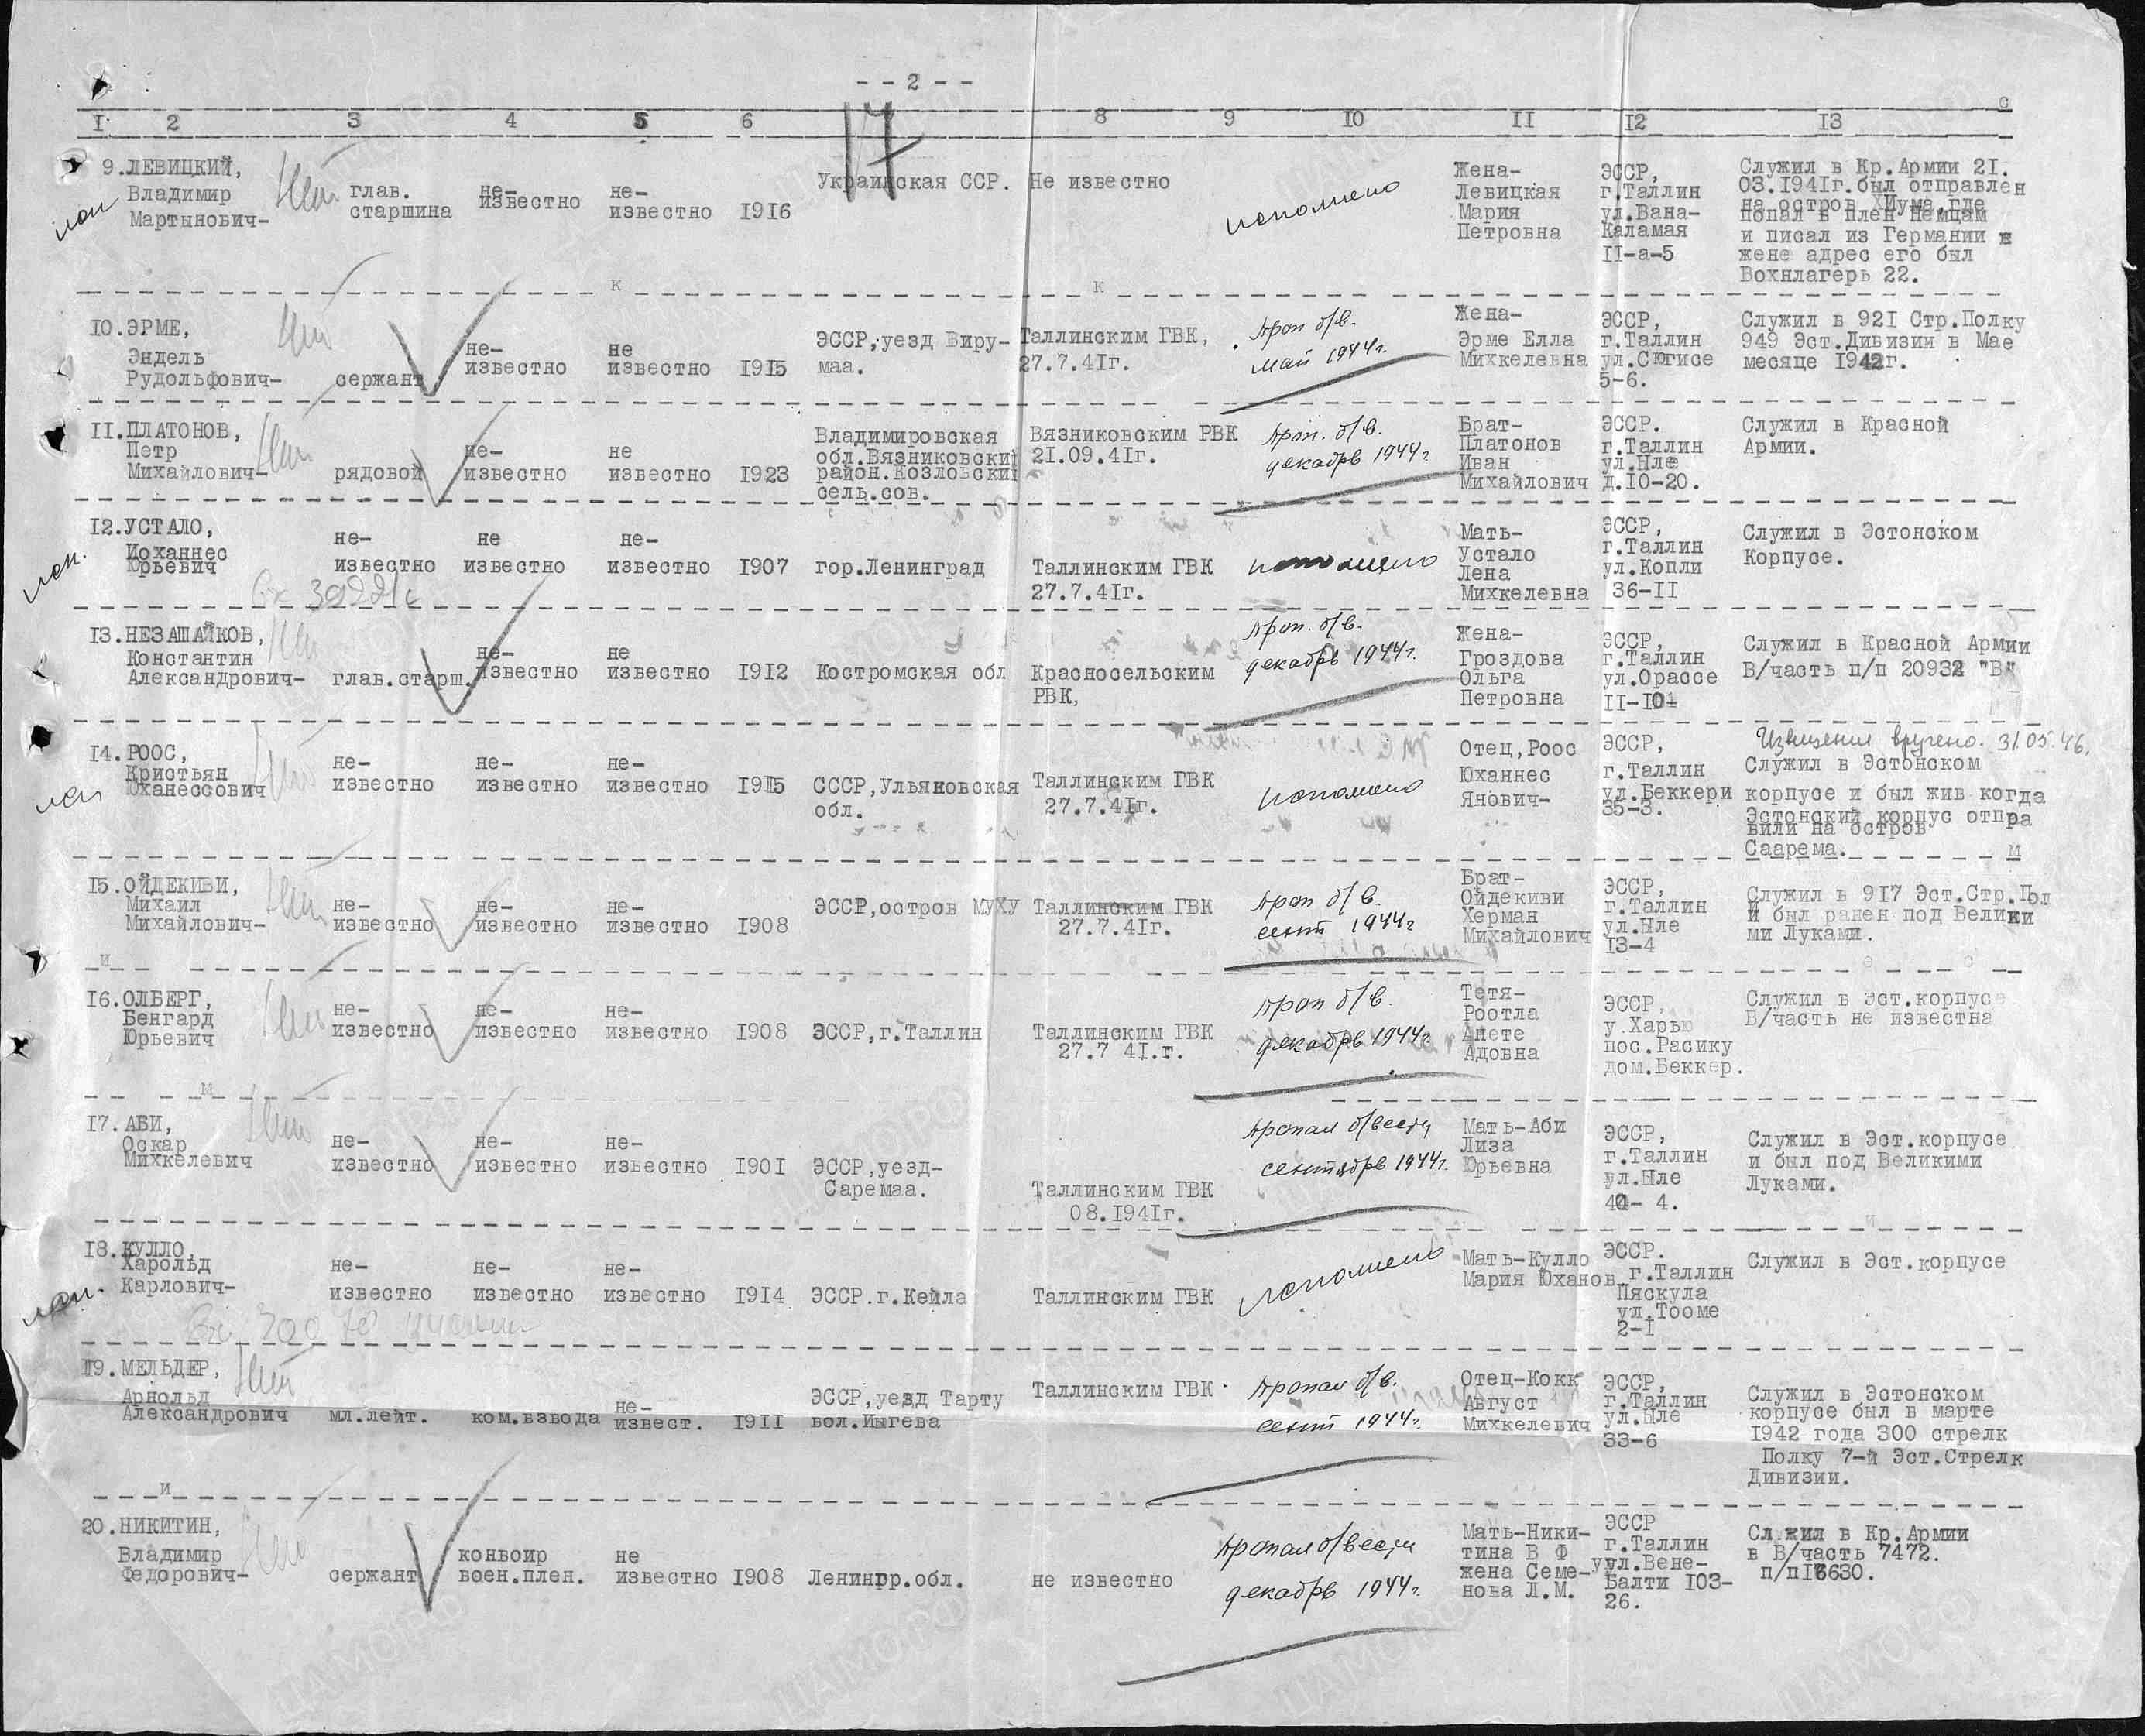 - - 2 - -
17
I 2 3 4 5 6 8 9 10 II I2 I3
с
9.ЛЕВИЦКИЙ,
Владимир
Мартынович-
Нет
глав.
старшина
не-
известно
не-
известно
1916
Украинская ССР.
Не известно
исполнено
Жена-
Левицкая
Мария
Петровна
ЭССР,
г.Таллин
ул.Вана-
Каламая
II-а-5
Служил в Кр.Армии 2I.
03.I94Iг.был отправлен
на остров ХИума,где
попал в плен Немцам
и писал из Германии в
жене адрес его был
Вохнлагерь 22.
к
к
I0.ЭРМЕ,
Эндель
Рудольфович-
Нет
сержант
не-
известно
не
известно
1915
ЭССР,уезд Виру-
маа.
Таллинским ГВК,
27.7.4Iг.
проп б/в.
май 1944г.
Жена-
Эрме Елла
Михкелевна
ЭССР,
г.Таллин
ул.Сюгисе
5-6.
Служил в 92I Стр.Полку
949 Эст.Дивизии в Мае
месяце I942г.
II.ПЛАТОНОВ,
Петр
Михайлович-
Нет
рядовой
не-
известно
не
известно
1923
Владимировская
обл.Вязниковский
район.Козловский
сель.сов.
Вязниковским РВК
2I.09.4Iг.
проп. б/в.
декабрь 1944г
Брат-
Платонов
Иван
Михайлович
ЭССР.
г.Таллин
ул.Нле
д.I0-20.
Служил в Красной
Армии.
I2.УСТАЛО,
Иоханнес
Юрьевич
не-
известно
не
известно
не-
известно
1907
гор.Ленинград
Таллинским ГВК
27.7.4Iг.
исполнено
Мать-
Устало
Лена
Михкелевна
ЭССР,
г.Таллин
ул.Копли
36-II
Служил в Эстонском
Корпусе.
I3.НЕЗАШАЙКОВ,
Константин
Александрович-
Нет
глав.старш.
не-
известно
не
известно
1912
Костромская обл
Красносельским
РВК,
проп. б/в.
декабрь 1944г.
Жена-
Гроздова
Ольга
Петровна
ЭССР,
г.Таллин
ул.Орассе
II-I01
Служил в Красной Армии
В/часть п/п 20932 "В"
I4.РООС,
Кристьян
Юханессович
Нет
не-
известно
не-
известно
не-
известно
1915
СССР,Ульяновская
обл.
Таллинским ГВК
27.7.4Iг.
исполнено
Отец,Роос
Юханнес
Янович-
ЭССР,
г.Таллин
ул.Беккери
35-3.
Извещение вручено. 31.05.46.
Служил в Эстонском
корпусе и был жив когда
Эстонский корпус отпра
вили на остров
Саарема.
м
I5.ОЙДЕКИВИ,
Михаил
Михайлович-
Нет
не-
известно
не-
известно
не-
известно
1908
ЭССР,остров МУХУ
Таллинским ГВК
27.7.4Iг.
проп б/в.
сент 1944г
Брат-
Ойдекиви
Херман
Михайлович
ЭССР,
г.Таллин
ул.Нле
I3-4
Служил в 9I7 Эст.Стр.Пол
и был ранен под Велики
ми Луками.
и
I6.ОЛБЕРГ,
Бенгард
Юрьевич
Нет
не-
известно
не-
известно
не-
известно
1908
ЭССР,г.Таллин
Таллинским ГВК
27.7 4I.г.
проп б/в.
декабрь 1944г
Тетя-
Роотла
Анете
Адовна
ЭССР,
у.Харью
пос.Расику
дом.Беккер.
Служил в Эст.корпусе
В/часть не известна
м
I7.АБИ,
Оскар
Михкелевич
Нет
не-
известно
не-
известно
не-
известно
I90I
ЭССР,уезд-
Саремаа.
Таллинским ГВК
08.I94Iг.
пропал б/вести
сентябрь 1944г.
Мать-Аби
Лиза
Юрьевна
ЭССР,
г.Таллин
ул.Нле
- 4.
Служил в Эст.корпусе
и был под Великими
Луками.
и
I8.КУЛЛО,
Харольд
Карлович-
не-
известно
не-
известно
не-
известно
1914
ЭССР.г.Кейла
Таллинским ГВК
исполнено
Мать-Кулло
Мария Юханов
ЭССР.
г.Таллин
Пяскула
ул.Тооме
2-I
Служил в Эст.корпусе
I9.МЕЛЬДЕР,
Арнольд
Александрович
Нет
мл.лейт.
ком.взвода
не-
извест.
I9II
ЭССР,уезд Тарту
вол.Йыгева
Таллинским ГВК
пропал б/в.
сент 1944г.
Отец-Кокк
Август
Михкелевич
ЭССР,
г.Таллин
ул.Нле
33-6
Служил в Эстонском
корпусе был в марте
I942 года 300 стрелк
Полку 7-й Эст.Стрелк
Дивизии.
и
20.НИКИТИН,
Владимир
Федорович-
Нет
сержант
конвоир
воен.плен.
не
известно
1908
Ленингр.обл.
не известно
пропал б/вести
декабрь 1944г
Мать-Ники-
тина В Ф
жена Семе-
нова Л.М.
ЭССР
г.Таллин
ул.Вене-
Балти I03-
26.
Служил в Кр.Армии
в В/часть 7472.